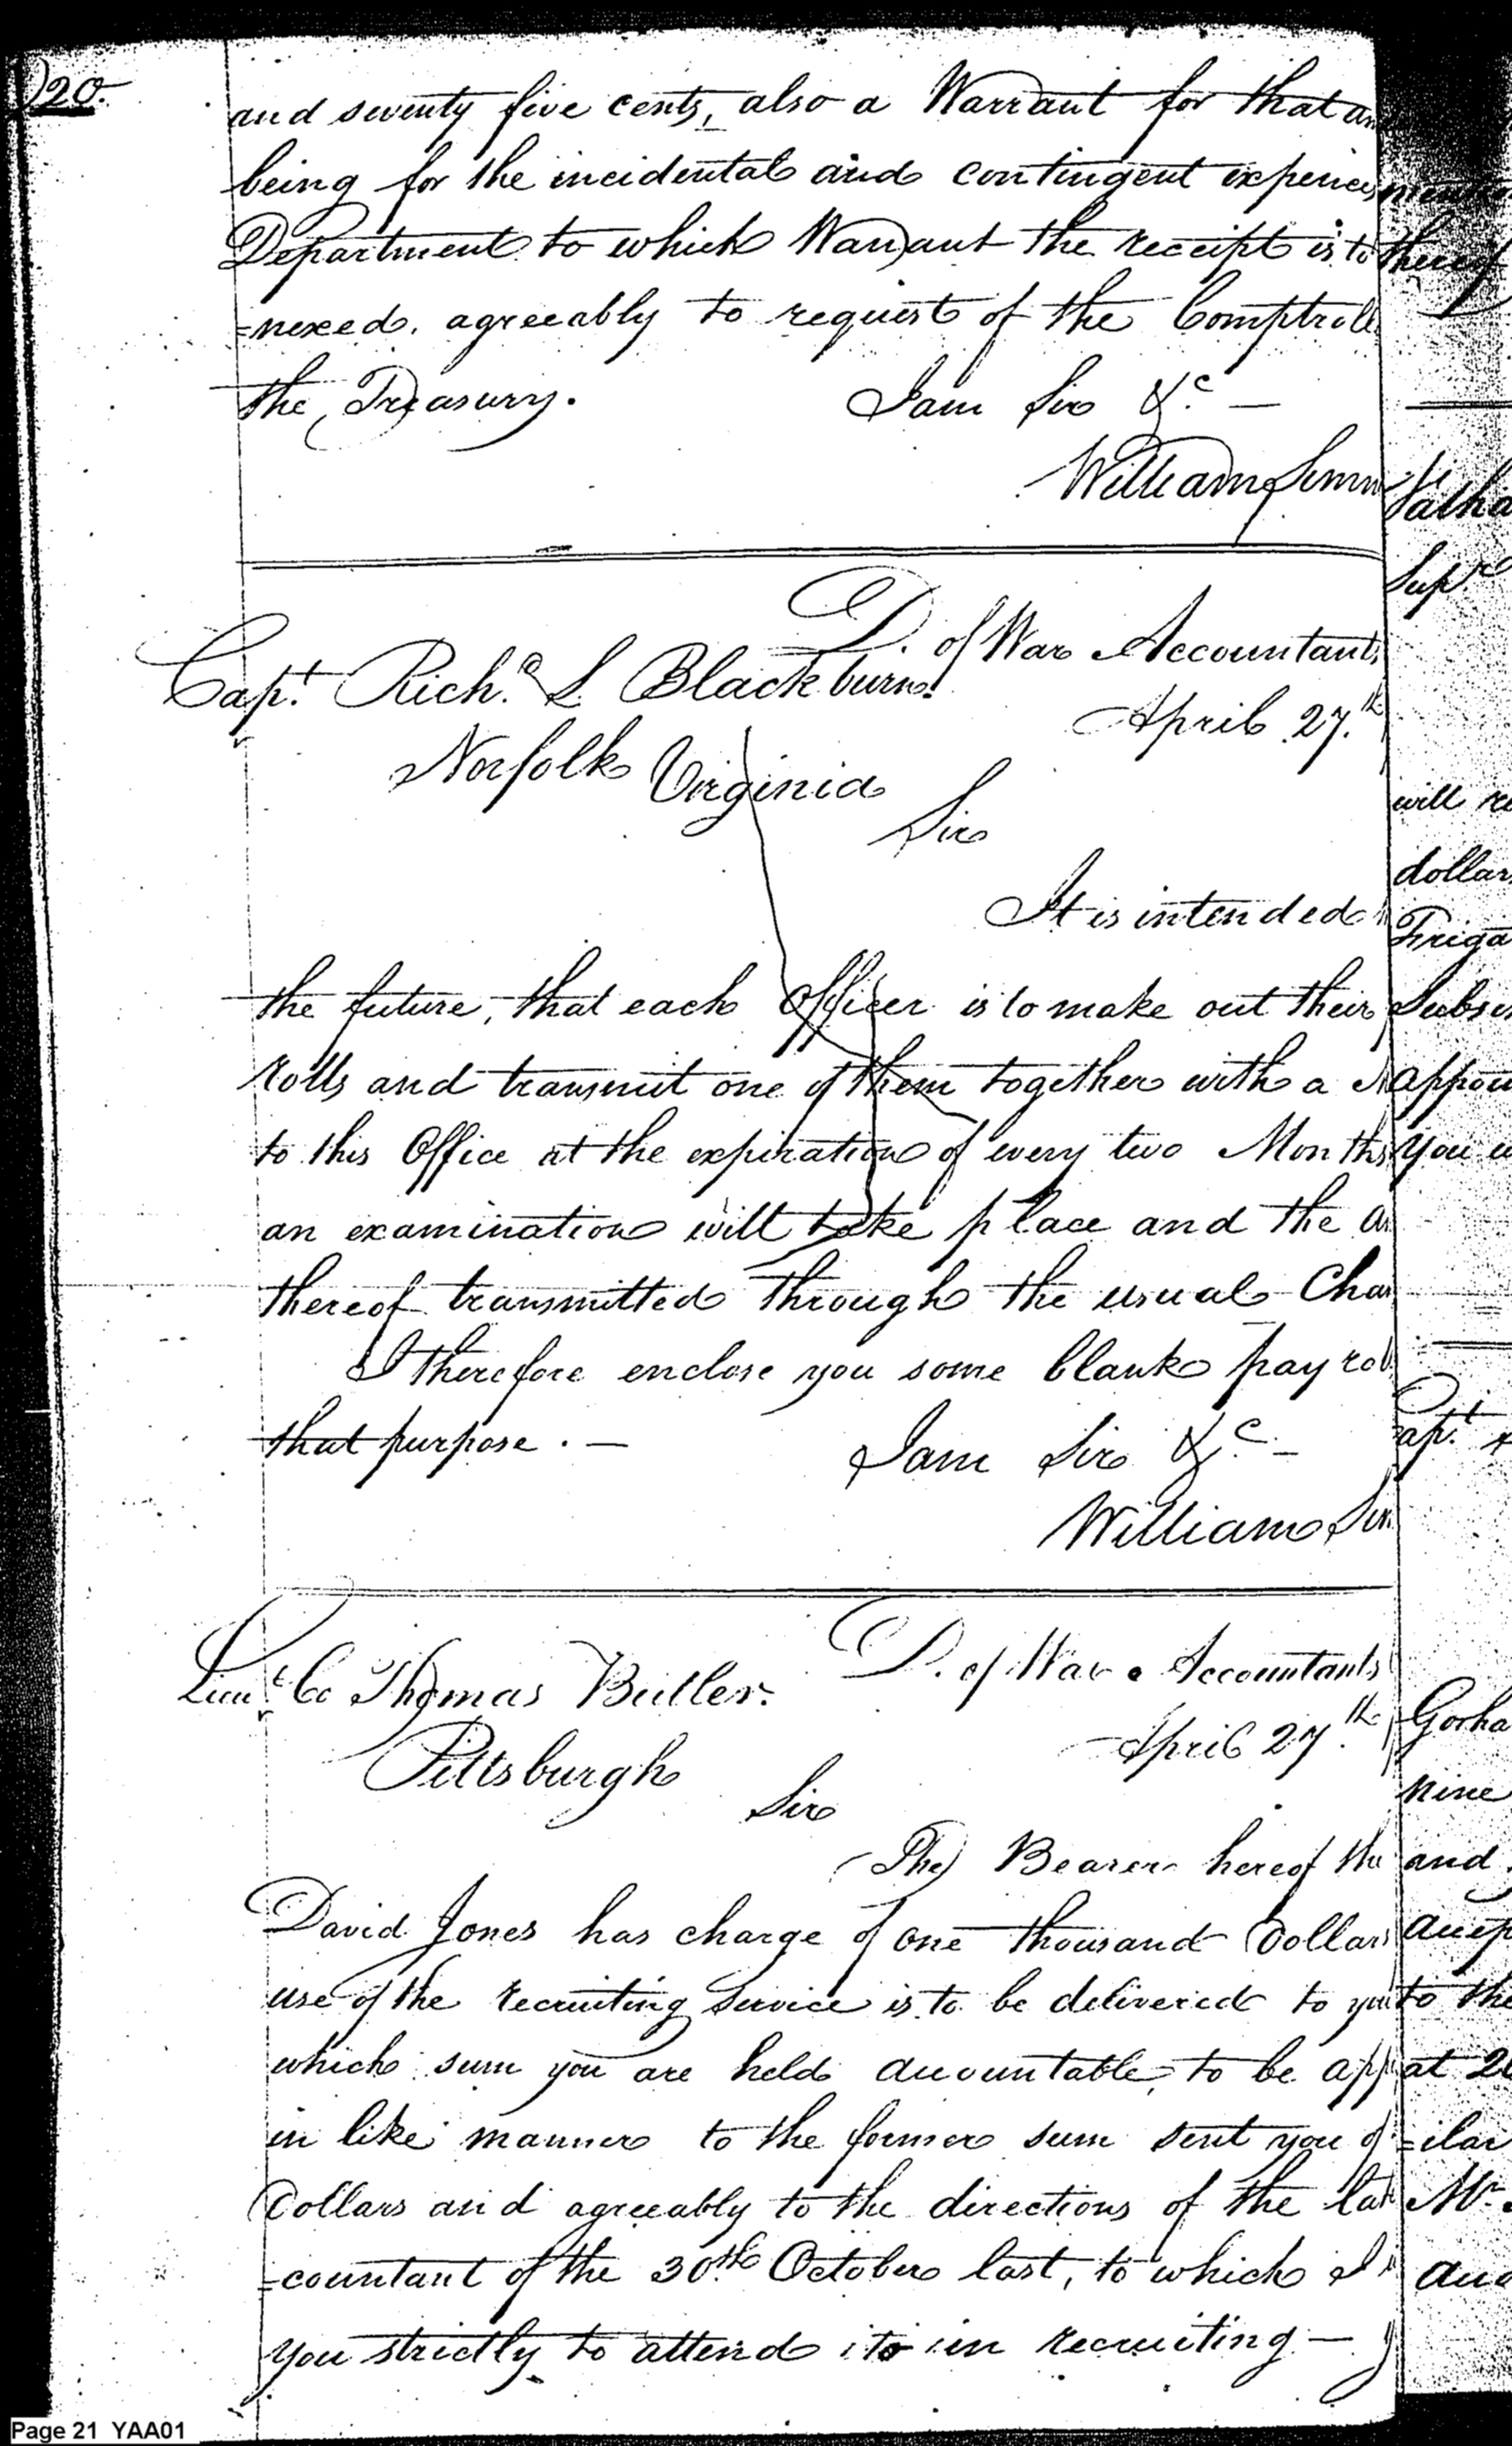 20.
and seventy five cents, also a Warrant for that am
being for the incidental and contingent expences
Department to which Warrant the receipt is to
=nexed, agreeably to request of the Comptrolle
the Treasury.
I am Sir &c. —
William Simm
D. of War Accountants
Capt. Richd. S. Blackburn.
April 27.th
Norfolk Virginia
Sir
It is intended
the future, that each Officer is to make out their
rolls and transmit one of them together with a
to this Office at the expiration of every two Months
an examination will take place and the a
thereof transmitted through the usual Chan
I therefore enclose you some blank pay rol
that purpose. —
I am Sir &c. —
William Sim
D. of War Accountants
Lieut. Co Thomas Butler.
April 27th
Pittsburgh
Sir
The Bearer hereof
David Jones has charge of one thousand Dollars
use of the recruiting Service is to be delivered to you
which sum you are held accountable, to be app
in like manner to the former sum sent you of
Dollars and agreeably to the directions of the lat
=countant of the 30th. October last, to which I
you strictly to attend to in recruiting —
thereof
Sup
will re
dollars
Friga
Subsi
appoin
you
apt.
Gorha
nine
and
accep
to the
at
=ilar
Mr.
Page 21 YAA01